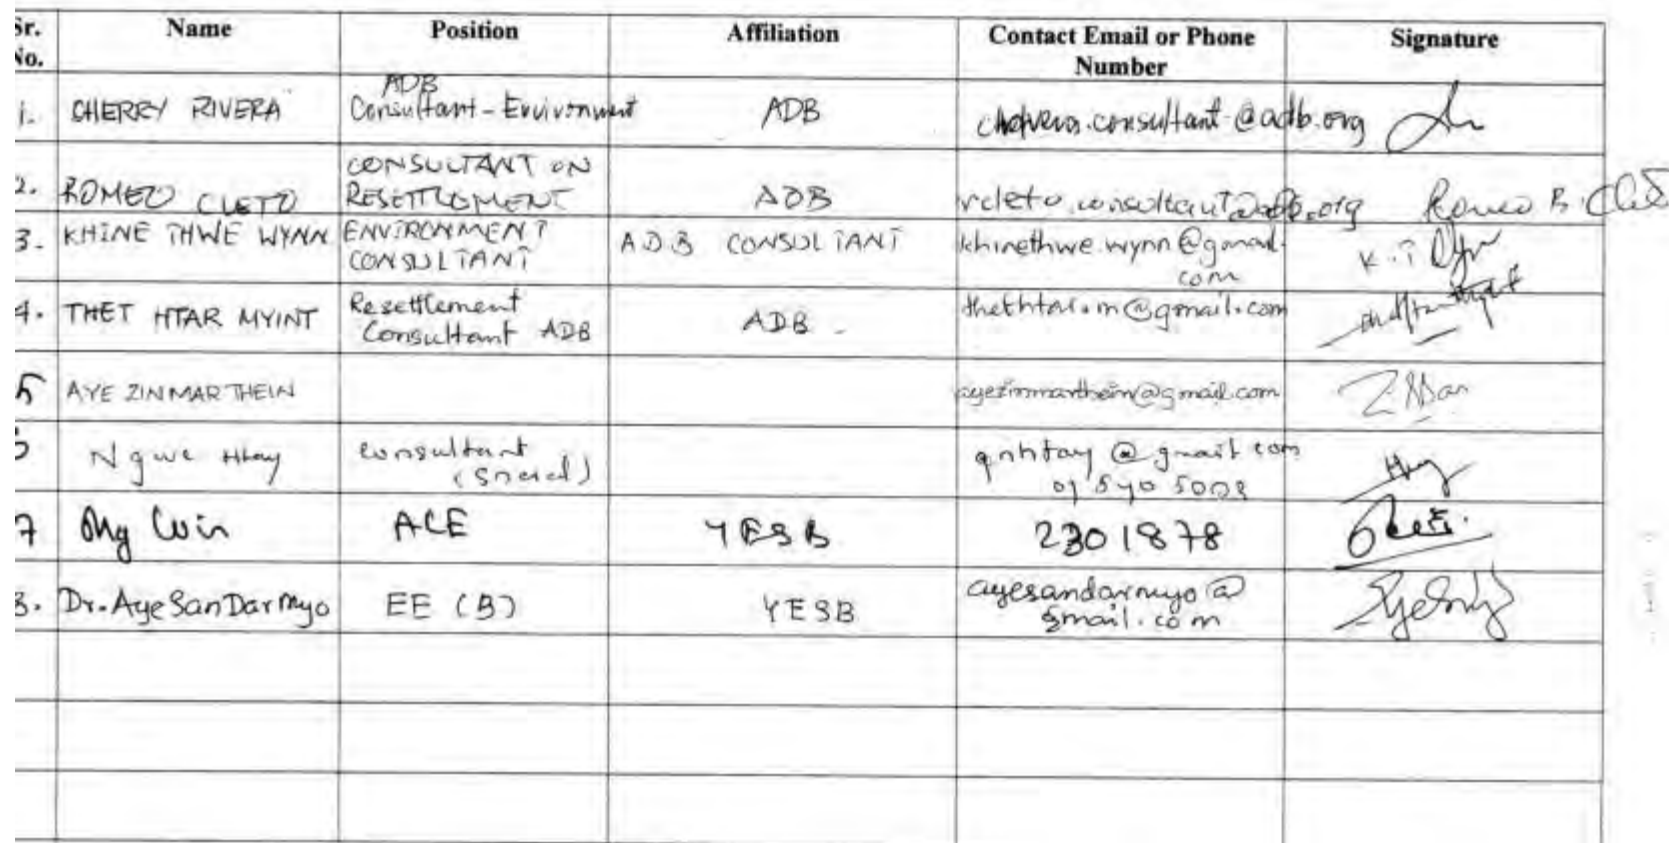 Sr. No. Name Position Affiliation Contact Email or Phone Number Signature
1. CHERRY RIVERA ADB Consultant - Environment ADB consultant@adb.org
2. ROMEO CLETO CONSULTANT ON RESETTLEMENT ADB rcleto.consultant@adb.org Romeo B. Cleto
3. KHINE THWE WYNN ENVIRONMENT CONSULTANT ADB CONSULTANT khinethwe.wynn@gmail.com K.T
4. THET HTAR MYINT Resettlement Consultant ADB ADB thethtar.m@gmail.com
5 AYE ZIN MAR THEIN ayezinmarthein@gmail.com
Ngwe Htay Consultant @gmail.com
7 Win ACE YESB 2301878
8. Dr. Aye San Dar Myo EE (B) YESB ayesandarmyo@gmail.com